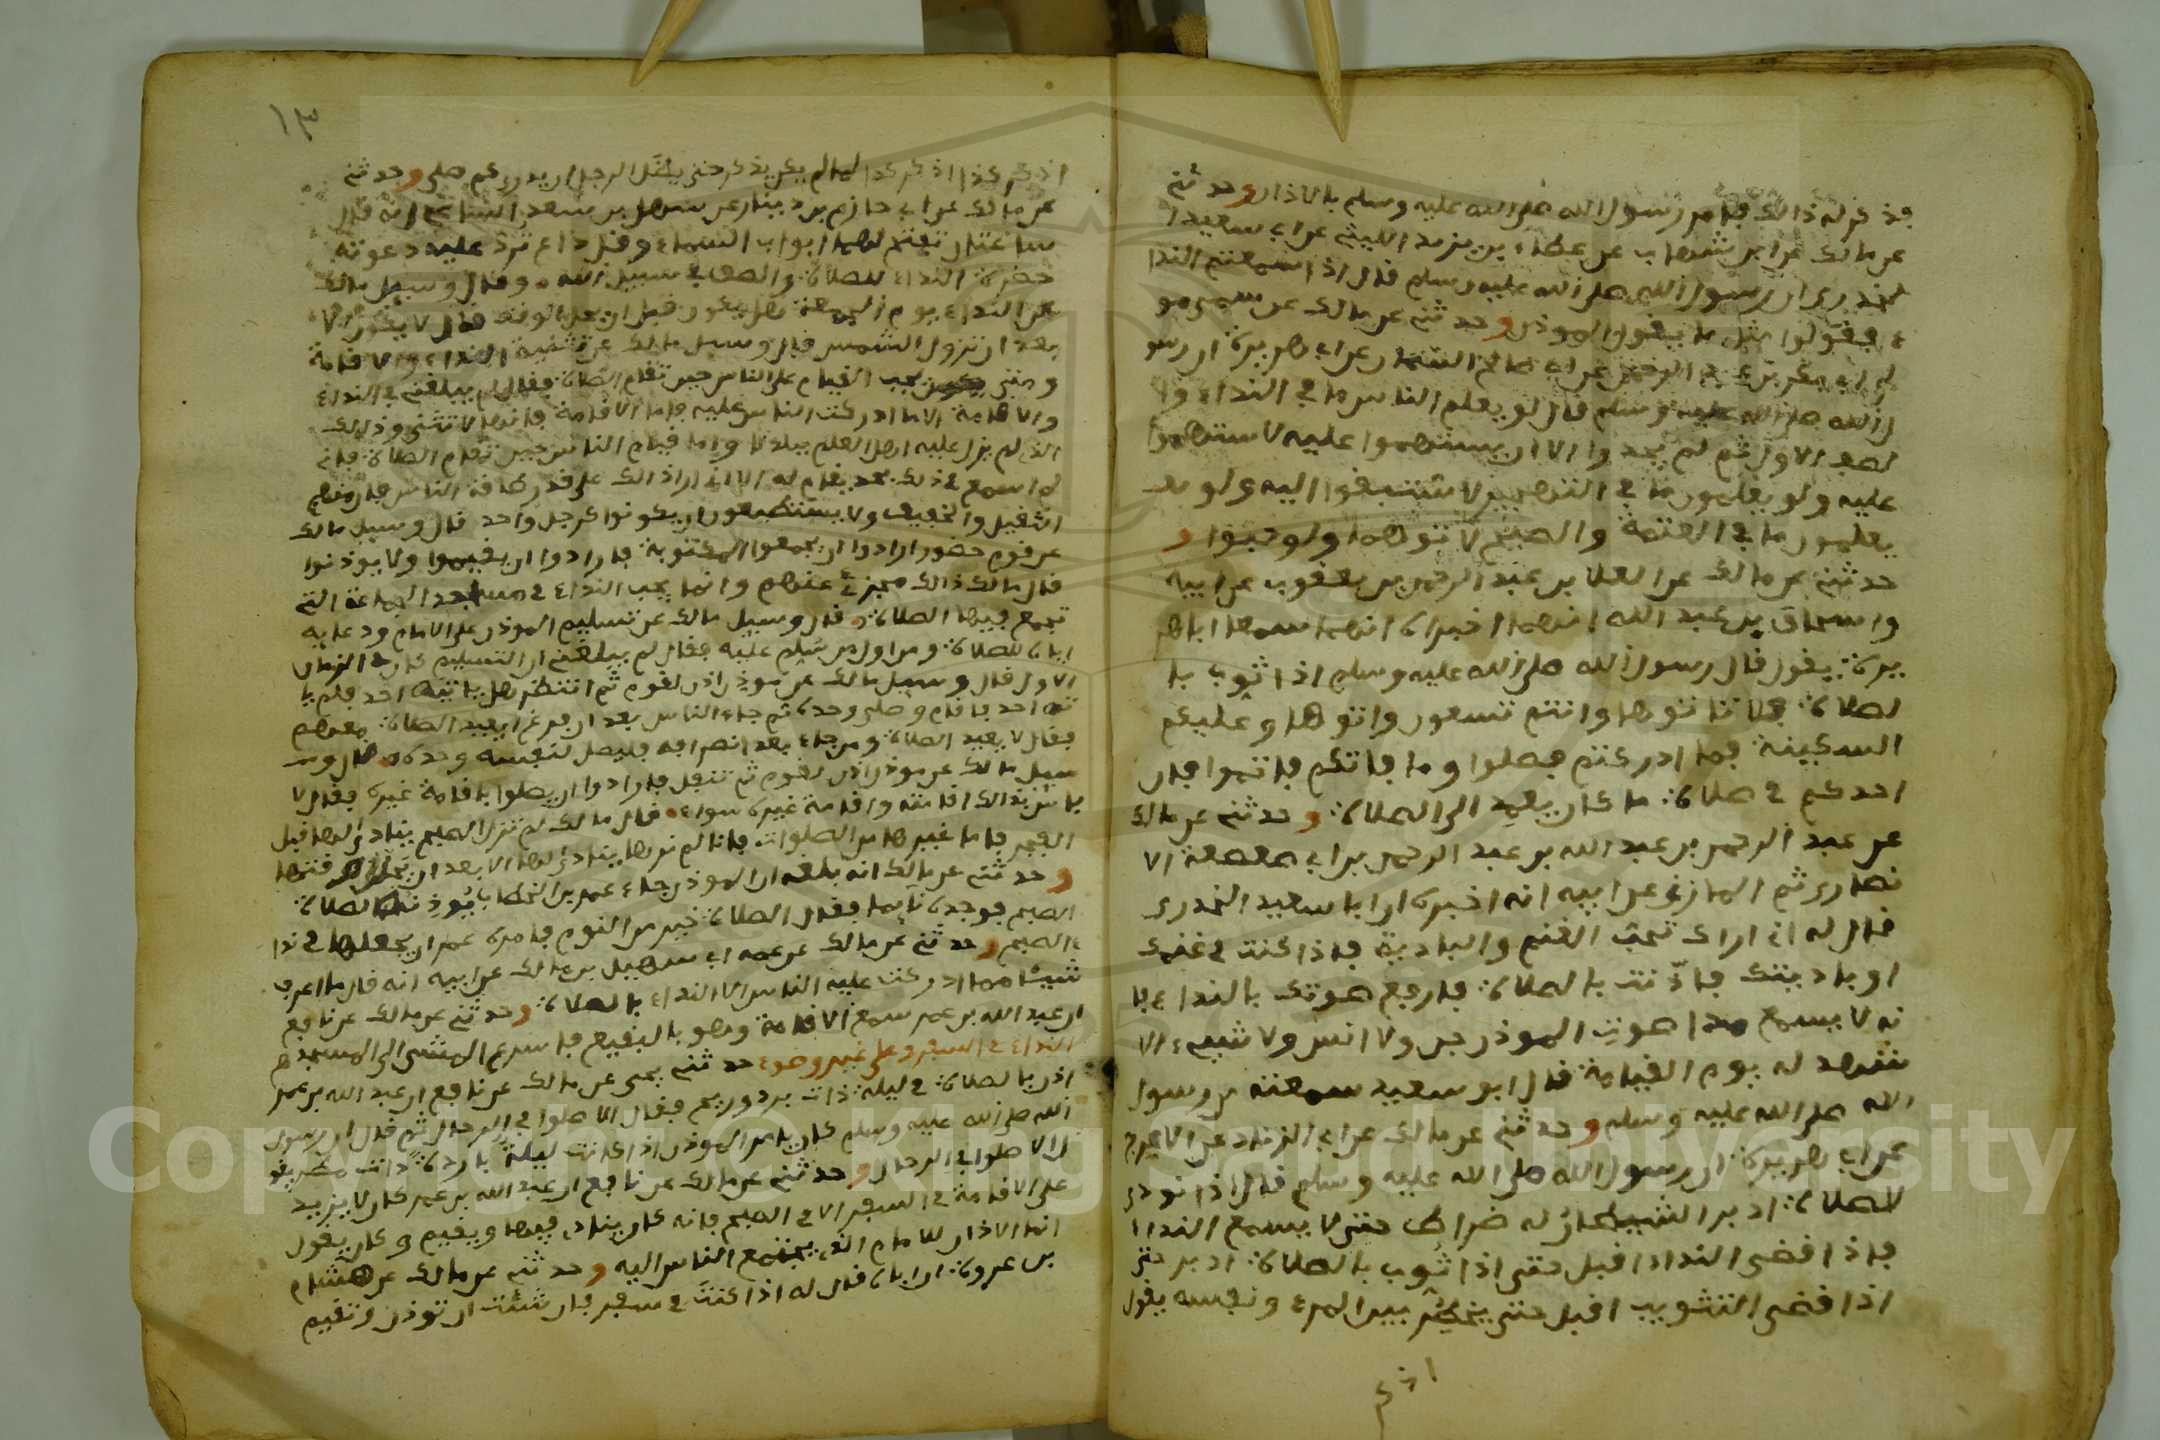 فذكر له ذالك فامر رسول الله صلى الله عليه وسلم بالاذان وحدثني
عن مالك عن ابن شهاب عن عطاء بن يزيد الليثي عن ابي سعيد ا
لخدري ان رسول الله صلى الله عليه وسلم قال اذا سمعتم الندا
ء فقولوا مثل ما يقول الموذن وحدثني عن مالك عن سمي مو
لى ابي بكر بن عبد الرحمن عن ابي صالح السمان عن ابي هريرة ان رسو
ل الله صلى الله عليه وسلم قال لو يعلم الناس ما في النداء وا
لصف الاول ثم لم يجدوا الا ان يستهموا عليه لاستهموا
عليه ولو يعلمون ما في التهجير لاستبقوا اليه ولو
يعلمون ما في العتمة والصبح لاتوهما ولو حبوا و
حدثني عن مالك عن العلا بن عبد الرحمن بن يعقوب عن ابيه
واسحاق بن عبد الله انهما اخبراه انهما سمعا ابا هر
يرة يقول قال رسول الله صلى الله عليه وسلم اذا ثوب با
لصلاة فلا تاتوها وانتم تسعون واتوها وعليكم
السكينة فما ادركتم فصلوا وما فاتكم فاتموا فان
احدكم في صلاة ما كان يعمد الى الصلاة وحدثني عن مالك
عن عبد الرحمن بن عبد الله بن عبد الرحمن بن ابي صعصعة الا
نصاري ثم المازني عن ابيه انه اخبره ان ابا سعيد الخدري
قال له اني اراك تحب الغنم والبادية فاذا كنت في غنمك
او باديتك فاذنت بالصلاة فارفع صوتك بالنداء فا
نه لا يسمع مدا صوت الموذن جن ولا انس ولا شيء الا
شهد له يوم القيامة قال ابو سعيد سمعته من رسول
الله صلى الله عليه وسلم وحدثني عن مالك عن ابي الزناد عن الاعرج
عن ابي هريرة ان رسول الله صلى الله عليه وسلم قال اذا نودي
للصلاة ادبر الشيطان له ضراط حتى لا يسمع الندا
فاذا قضى الندا اقبل حتى اذا ثوب بالصلاة ادبر حتى
اذا قضى التثويب اقبل حتى يخطر بين المرء ونفسه يقول
اذكر
١٣
اذكر كذا اذكر كذا لما لم يكن يذكر حتى يظل الرجل ان يدري كم صلى وحدثني
عن مالك عن ابي حازم بن دينار عن سهل بن سعد الساعدي انه قال
ساعتان تفتح لهما ابواب السماء وقل داع ترد عليه دعوته
حضرة النداء للصلاة والصف في سبيل الله وقال وسيل مالك
عن النداء يوم الجمعة هل يكون قبل ان يحل الوقت فقال لا يكون الا
بعد ان تزول الشمس قال وسيل مالك عن تثنية النداء والاقامة
ومتى يجب القيام على الناس حين تقام الصلاة فقال لم يبلغني في النداء
والاقامة الا ما ادركت الناس عليه فاما الاقامة فانها لا تثنى وذلك
الذي لم يزل عليه اهل العلم ببلدنا واما قيام الناس حين تقام الصلاة فاني
لم اسمع في ذلك بحد يقام له الا اني ارا ذالك على قدر طاقة الناس فان منهم
الثقيل والخفيف ولا يستطيعون ان يكونوا كرجل واحد قال وسيل مالك
عن قوم حضور ارادوا ان يجمعوا المكتوبة فارادوا ان يقيموا ولا يوذنوا
قال مالك ذالك مجزي عنهم وانما يجب النداء في مساجد الجماعة التي
تجمع فيها الصلاة قال وسيل مالك عن تسليم الموذن على الامام ودعايه
اياه للصلاة ومن اول من سلم عليه فقال لم يبلغني ان التسليم كان في الزمان
الاول قال وسيل مالك عن موذن اذن لقوم ثم انتظر هل ياتيه احد فلم يا
ته احد فاقام وصلى وحده ثم جاء الناس بعد ان فرغ ايعيد الصلاة معهم
فقال لا يعيد الصلاة ومن جاء بعد انصرافه فليصل لنفسه وحده قال و
سيل مالك عن موذن اذن لقوم ثم تنفل فارادوا ان يصلوا باقامة غيره فقال لا
باس بذالك اقامته واقامة غيره سواء قال مالك لم تزل الصبح ينادى لها قبل
الفجر فاما غيرها من الصلوات فانا لم نرها ينادى لها الا بعد ان يحل وقتها
وحدثني عن مالك انه بلغه ان الموذن جاء عمر بن الخطاب يوذنه لصلاة
الصبح فوجده نايما فقال الصلاة خير من النوم فامره عمر ان يجعلها في ندا
ء الصبح وحدثني عن مالك عن عمه ابي سهيل بن مالك عن ابيه انه قال ما اعرف
شيئا مما ادركت عليه الناس الا النداء بالصلاة وحدثني عن مالك عن نافع
ان عبد الله بن عمر سمع الاقامة وهو بالبقيع فاسرع المشي الى المسجد
النداء في السفر وعلى غير وضوء حدثني يحيى عن مالك عن نافع ان عبد الله بن عمر
اذن بالصلاة في ليلة ذات برد وريح فقال الا صلوا في الرحال ثم قال ان رسول
الله صلى الله عليه وسلم كان يامر الموذن اذا كانت ليلة باردة ذات مطر يقو
ل الا صلوا في الرحال وحدثني عن مالك عن نافع ان عبد الله بن عمر كان لا يزيد
على الاقامة في السفر الا في الصبح فانه كان ينادي فيها ويقيم وكان يقول
انما الاذان للامام الذي يجتمع الناس اليه وحدثني عن مالك عن هشام
بن عروة ان اباه قال له اذا كنت في سفر فان شئت ان توذن وتقيم
Copyright © King Saud University